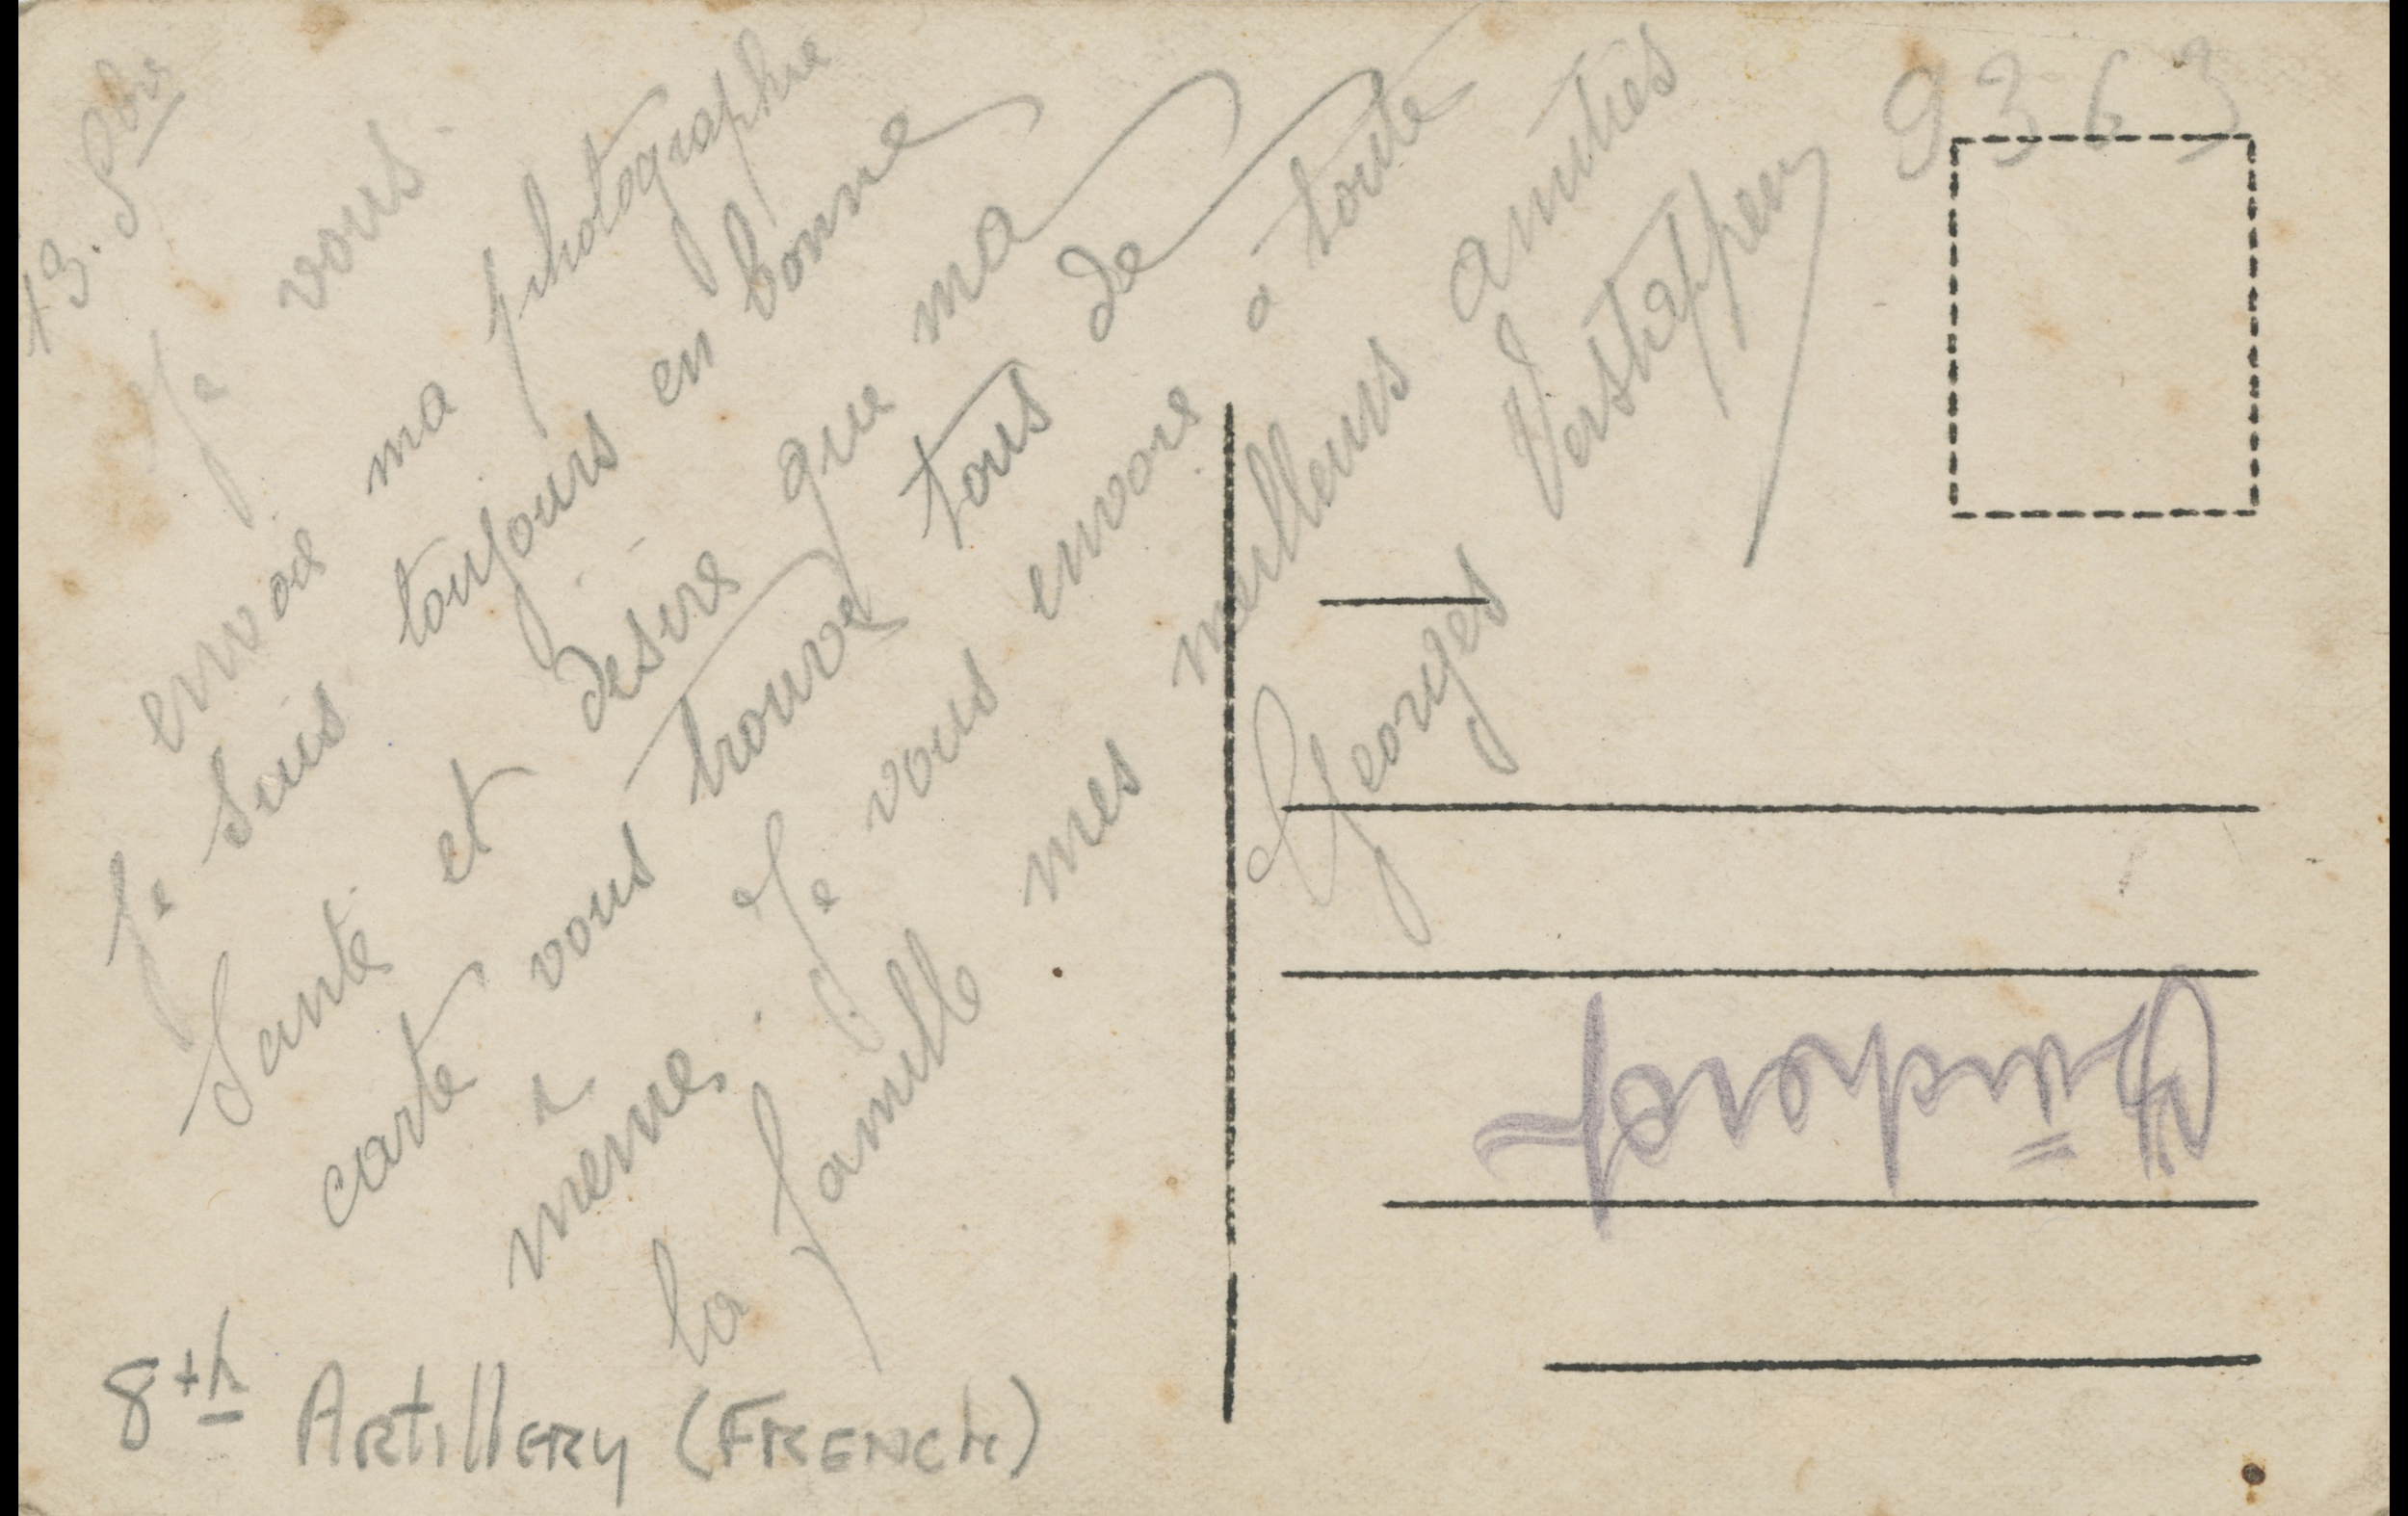 13. 9bre
Je vous
envoie ma photographie
Je suis toujours en bonne
Santé et desire que ma
carte vous trouve tous de
meme. Je vous envoie a toute
la famille mes meilleurs amities
Georges Verstappen
9363
8th Artillery (French)